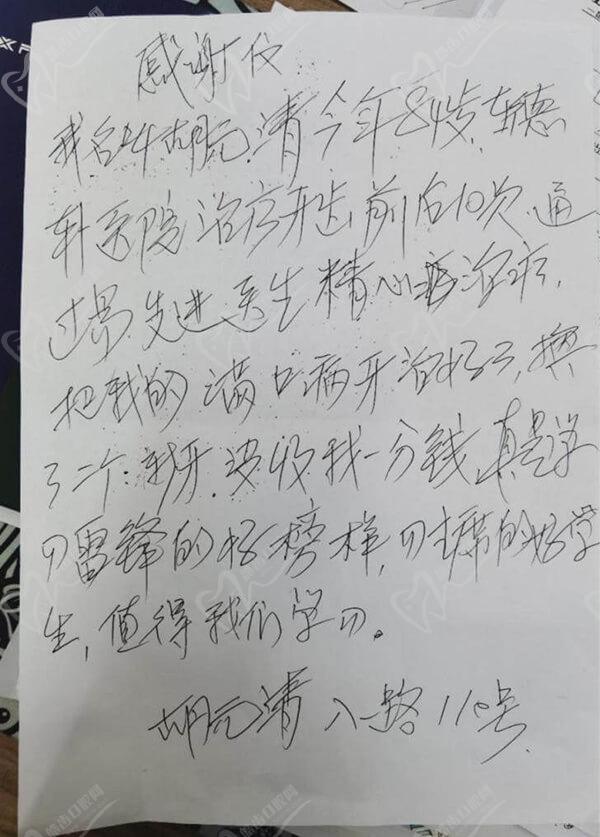 感谢信
我名叫胡元清今年84岁,在德
科医院治疗牙齿前后10次,通
过易先进医生精心治疗,
把我的满口病牙治好了,换
了二个新牙.没收我一分钱,真是学
习雷锋的好榜样,习主席的好学
生,值得我们学习。
胡元清 八一路110号